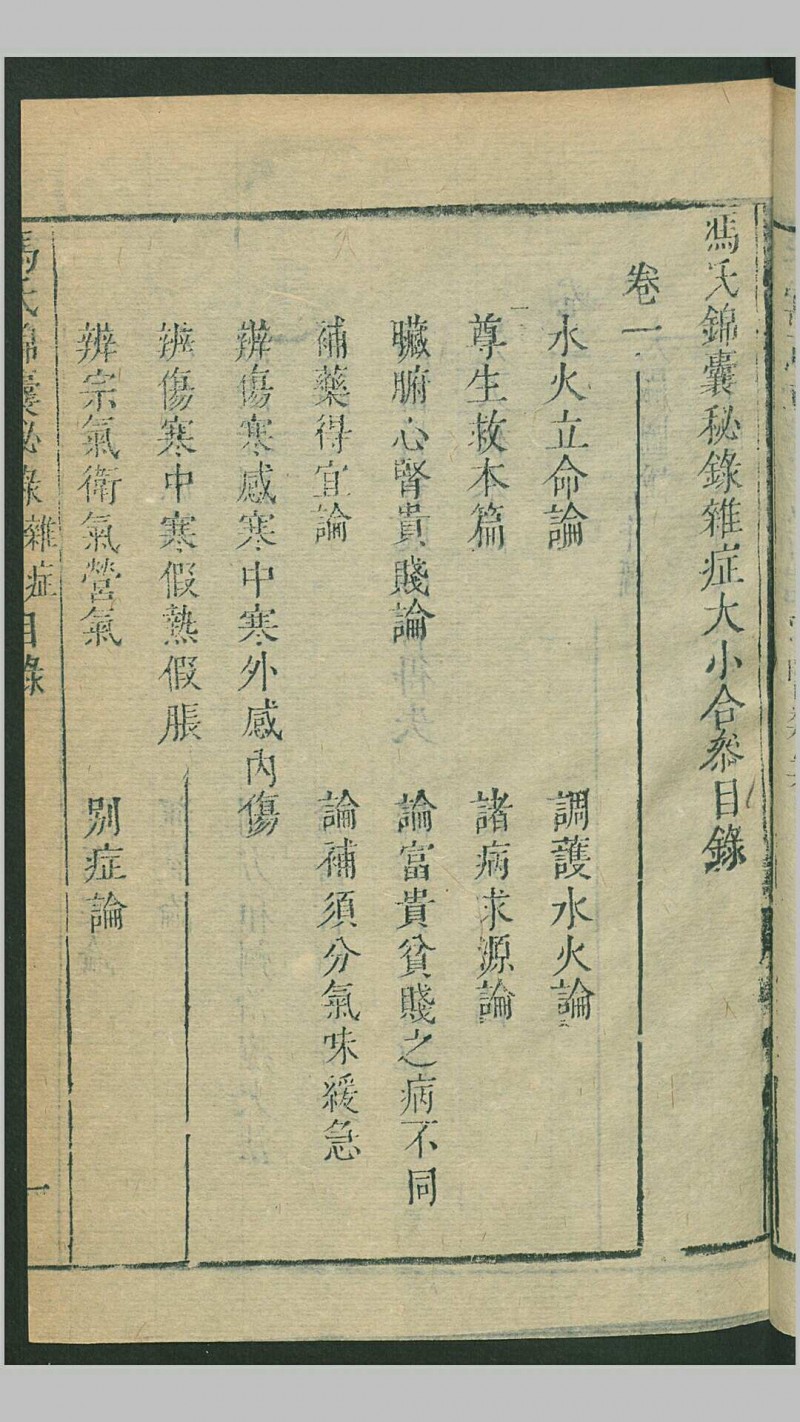 馮氏錦囊秘錄雜症大小合叅目錄
卷一
水火立命論　調護水火論
尊生救本篇　諸病求源論
臟腑心腎貴賤論　論富貴貧賤之病不同
補藥得宜論　論補須分氣味緩急
辨傷寒感寒中寒外感內傷
辨傷寒中寒假熱假脹
辨宗氣衛氣營氣　別症論
馮氏錦囊秘錄 雜症 目錄 一